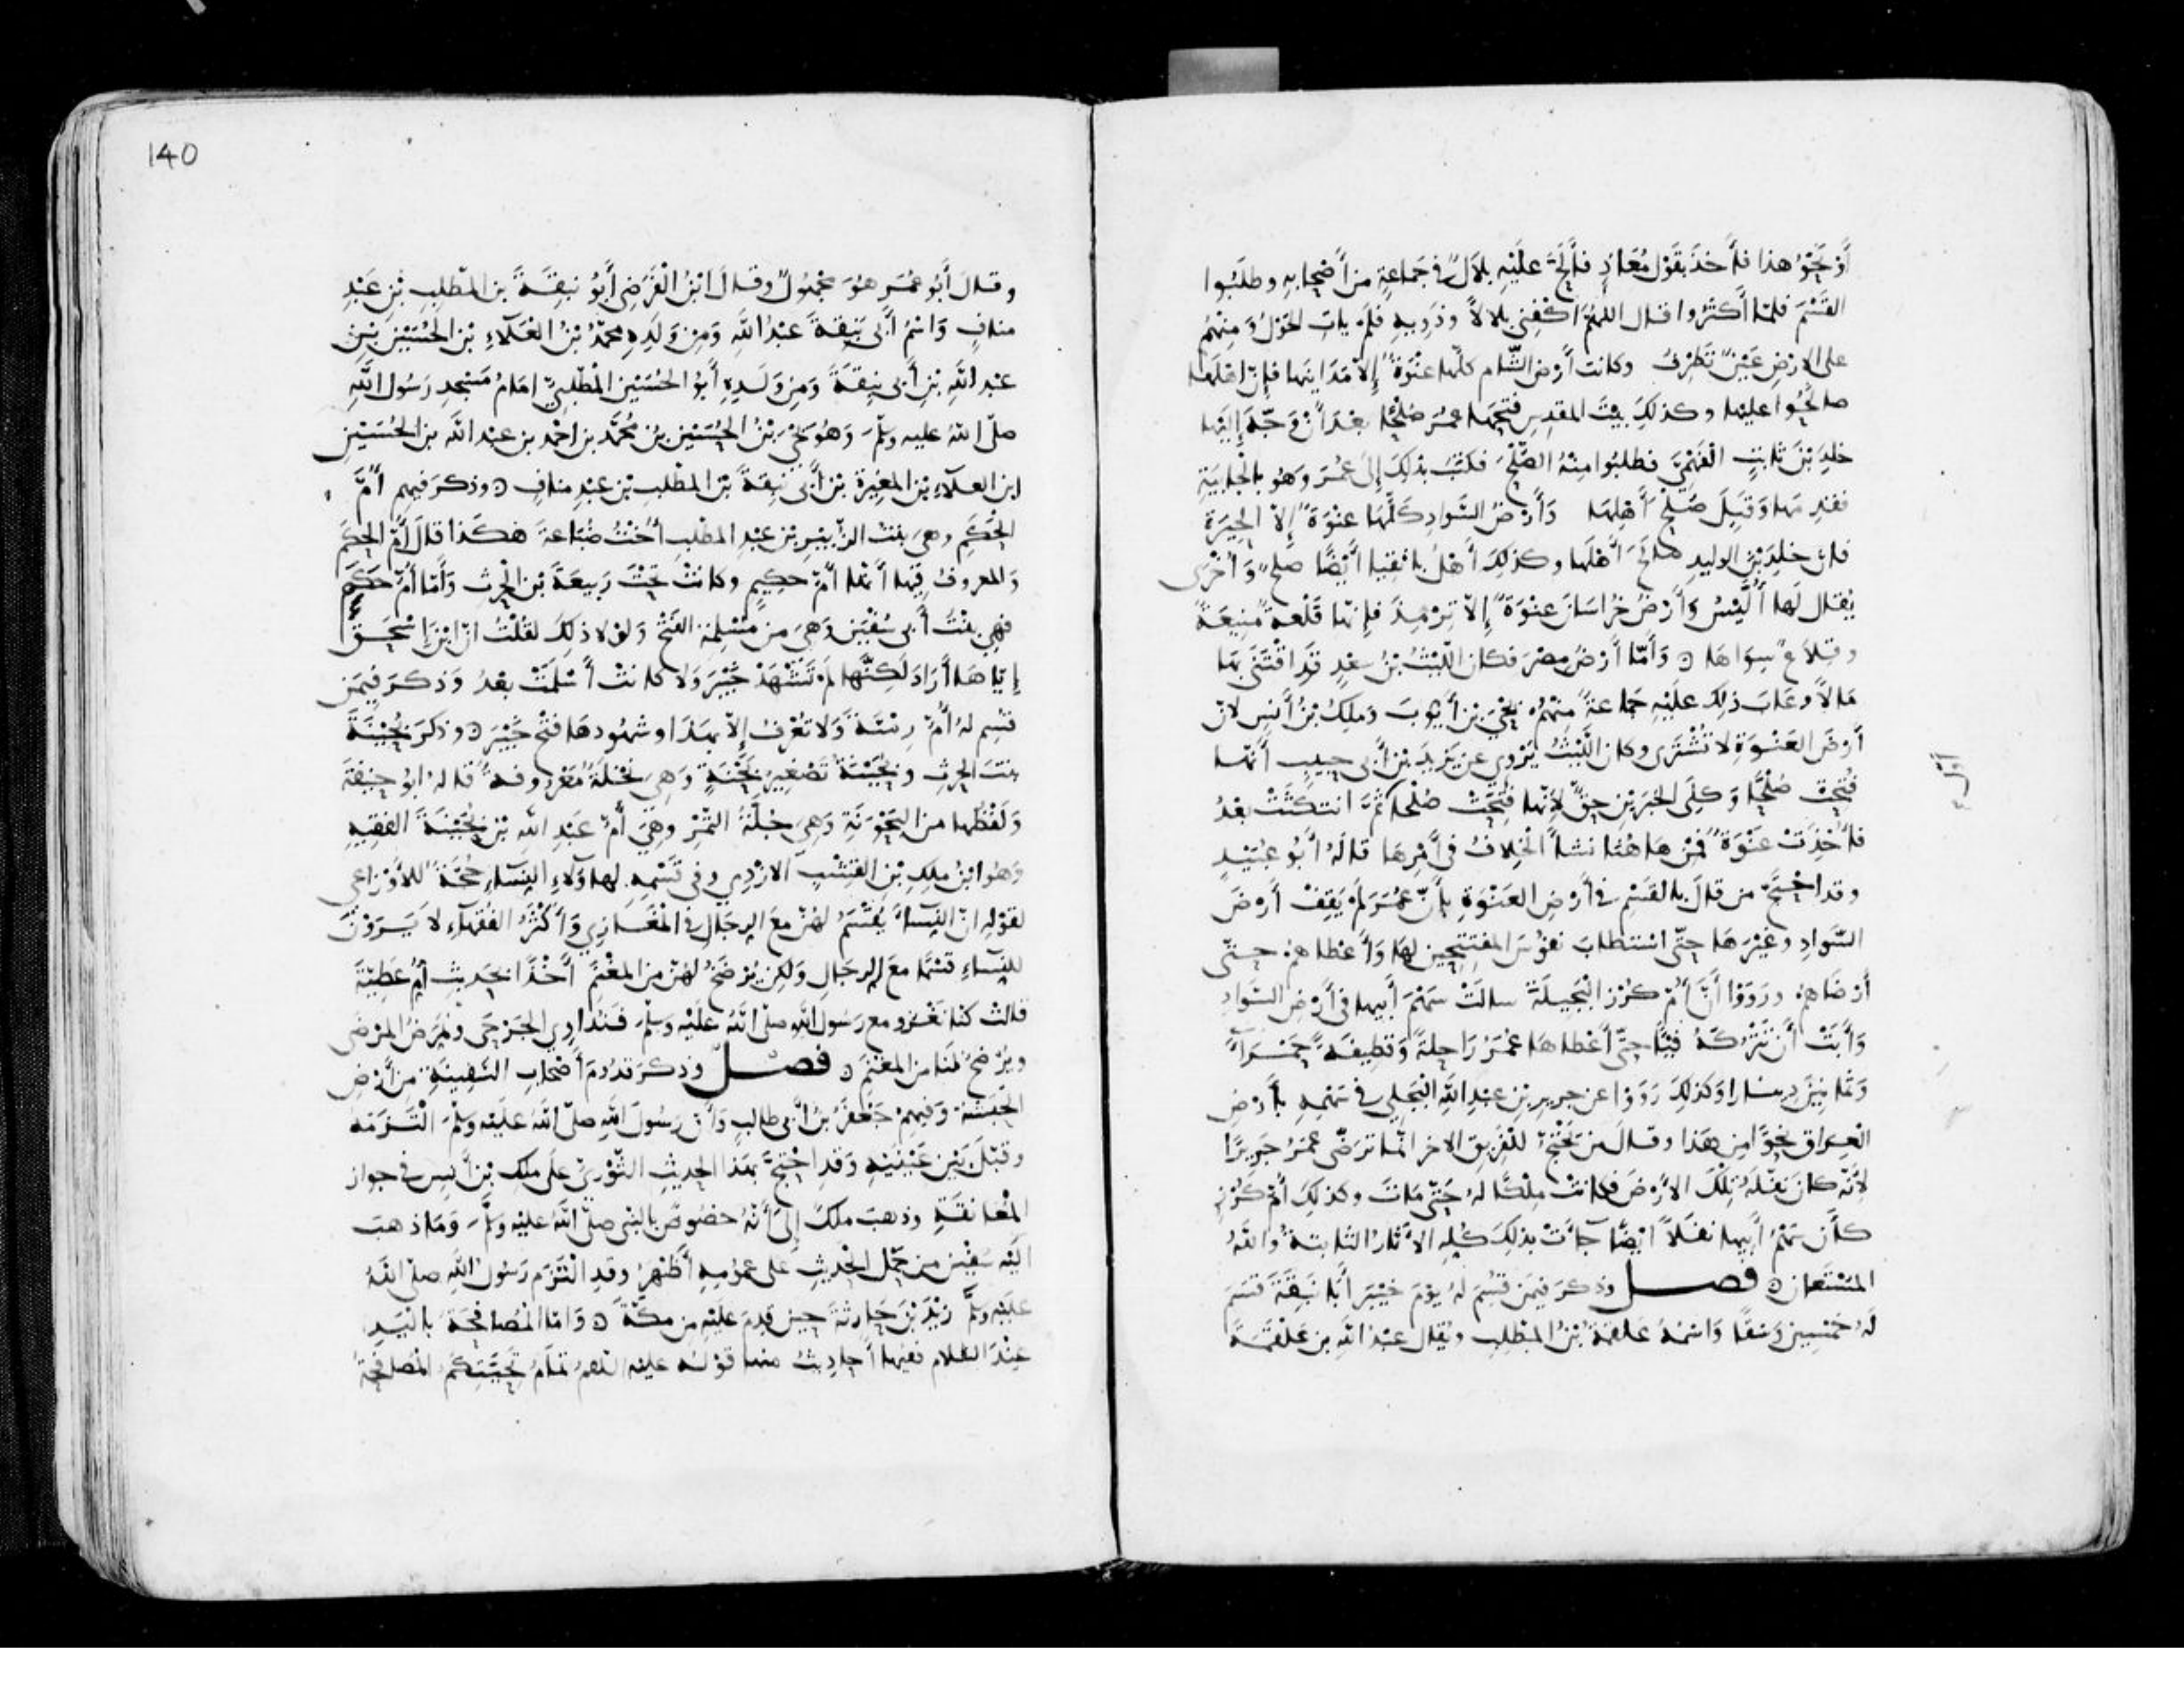 أو نحو هذا فأخذ بقول معاذ فألح عليه بلال في جماعة من أصحابه وطلبوا
القسم فلما أكثروا قال اللهم اكفني بلالا وذويه فلم يات الحول ومنهم
على الارض عين تطرف وكانت أرض الشام كلها عنوة إلا مداينها فإن اهلها
صالحوا عليها وكذلك بيت المقدس فتحها عمر صلحا بعد أن وجه إليها
خلد بن ثابت الفهمي فطلبوا منه الصلح فكتب بذلك إلى عمر وهو بالجابية
فقدمها وقبل صلح أهلها وأرض السواد كلها عنوة إلا الحيرة
فان خلد بن الوليد صالح أهلها وكذلك أهل بانقيا أيضا صلح وأخرى
يقال لها أليس وأرض خراسان عنوة إلا ترمذ فإنها قلعة منيعة
وقلاع سواها وأما أرض مصر فكان الليث بن سعد قد اقتنى بها
مالا وعاب ذلك عليه جماعة منهم يحيى بن أيوب وملك بن أنس لان
أرض العنوة لا تشترى وكان الليث يروي عن يزيد بن أبي حبيب أنها
فتحت صلحا وكلى الخبرين حق لأنها فتحت صلحا ثم انتكثت بعد
فأخذت عنوة فمن هاهنا نشأ الخلاف في أمرها قاله أبو عبيد
وقد احتج من قال بالقسم في أرض العنوة بأن عمر لم يقف أرض
السواد وغيرها حتى استطاب نفوس المفتتحين لها وأعطاهم حتى
أرضاهم ورووا أن أم كرز البجيلة سالت سهم أبيها في أرض السواد
وأبت أن تتركه فيئا حتى أعطاها عمر راحلة وقطيفة حمراء
وثمانين دينارا وكذلك رووا عن جرير بن عبد الله البجلي في سهمه بأرض
العراق نحوا من هذا وقال من يحتج للفريق الاخر انما ترضى عمر جريرا
لأنه كان نفله تلك الارض فكانت ملكا له حتى مات وكذلك أم كرز
كأن سهم أبيها نفلا ايضا جاءت بذلك كله الاثار الثابتة والله
المستعان فصل وذكر فيمن قسم له يوم خيبر أبا نبقة قسم
له خمسين وسقا واسمه علقمة بن المطلب ويقال عبد الله بن علقمة
140
وقال أبو عمر هو مجهول وقال ابن الفرضي أبو نبقة بن المطلب بن عبد
مناف واسم أبي نبقة عبد الله ومن ولده محمد بن العلاء بن الحسين بن
عبد الله بن أبي نبقة ومن ولده أبو الحسين المطلبي امام مسجد رسول الله
صلى الله عليه وسلم وهو يحيى بن الحسين بن محمد بن احمد بن عبد الله بن الحسين
ابن العلاء بن المغيرة بن أبي نبقة بن المطلب بن عبد مناف وذكر فيهم أم
الحكم وهي بنت الزبير بن عبد المطلب أخت ضباعة هكذا قال أم الحكم
والمعروف فيها أنها أم حكيم وكانت تحت ربيعة بن الحرث وأما أم حكم
فهي بنت أبي سفين وهي من مسلمة الفتح ولولا ذلك لقلت ان ابن إسحق
إياها أراد لكنها لم تشهد خيبر ولا كانت أسلمت بعد وذكر فيمن
قسم له أم رمثة ولا تعرف إلا بهذا وشهودها فتح خيبر وذكر بحينة
بنت الحرث وبحينة تصغير بحنة وهي نخلة معروفة قاله ابو حنيفة
ولفظها من البحونة وهي جلة التمر وهي أم عبد الله بن بحينة الفقيه
وهو ابن ملك بن القشب الازدي وفي قسمه لهاولاء النساء حجة للأوزاعي
لقوله ان النساء يقسم لهن مع الرجال في المغازي وأكثر الفقهاء لا يرون
للنساء قسما مع الرجال ولكن يرضخ لهن من المغنم أخذا بحديث أم عطية
قالت كنا نغزو مع رسول الله صلى الله عليه وسلم فنداوي الجرحى ونمرض المرضى
ويرضخ لنا من المغنم فصل وذكر قدوم أصحاب السفينة من أرض
الحبشة وفيهم جعفر بن أبي طالب وأن رسول الله صلى الله عليه وسلم التزمه
وقبل بين عينيه وقد احتج بهذا الحديث الثوري على ملك بن أنس في جواز
المعانقة وذهب ملك إلى أنه خصوص بالنبي صلى الله عليه وسلم وما ذهب
اليه سفين من حمل الحديث على عمومه أظهر وقد التزم رسول الله صلى الله
عليه وسلم زيد بن حارثة حين قدم عليه من مكة واما المصافحة باليد
عند السلام ففيها أحاديث منها قوله عليه السلم تمام تحيتكم المصافحة